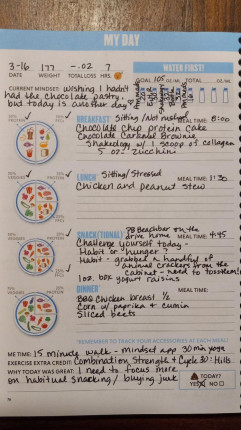 MY DAY
3-16 177 -.02 7
DATE WEIGHT TOTAL LOSS HRS.
WATER FIRST!
GOAL 105 OZ./ML TOTAL OZ./ML
CURRENT MINDSET: wishing I hadn't
had the chocolate pastry,
but today is another day
BREAKFAST Sitting / Not rushed
MEAL TIME: 8:00
Chocolate chip protein cake
Chocolate Caramel Brownie
Shakeology w/ 1 scoop of collagen
5 oz. zucchini
LUNCH Sitting / Stressed
MEAL TIME: 1:30
Chicken and peanut stew
SNACK (TUNAL) PB Beachbar on the
drive home MEAL TIME: 4:45
Challenge yourself today -
Habit or hunger?
Habit - grabbed a handful of
animal crackers from the
cabinet - need to toss them!
1 oz. box yogurt raisins
DINNER
MEAL TIME:
BBQ Chicken breast 1/2
Corn w/ paprika & cumin
Sliced beets
*REMEMBER TO TRACK YOUR ACCESSORIES AT EACH MEAL!
ME TIME: 15 minute walk - mindset app 30 min yoga
EXERCISE EXTRA CREDIT: Combination, Strength & Cycle 30: Hills
WHY TODAY WAS GREAT: I need to focus more
on habitual snacking / buying junk
TODAY?
YES NO